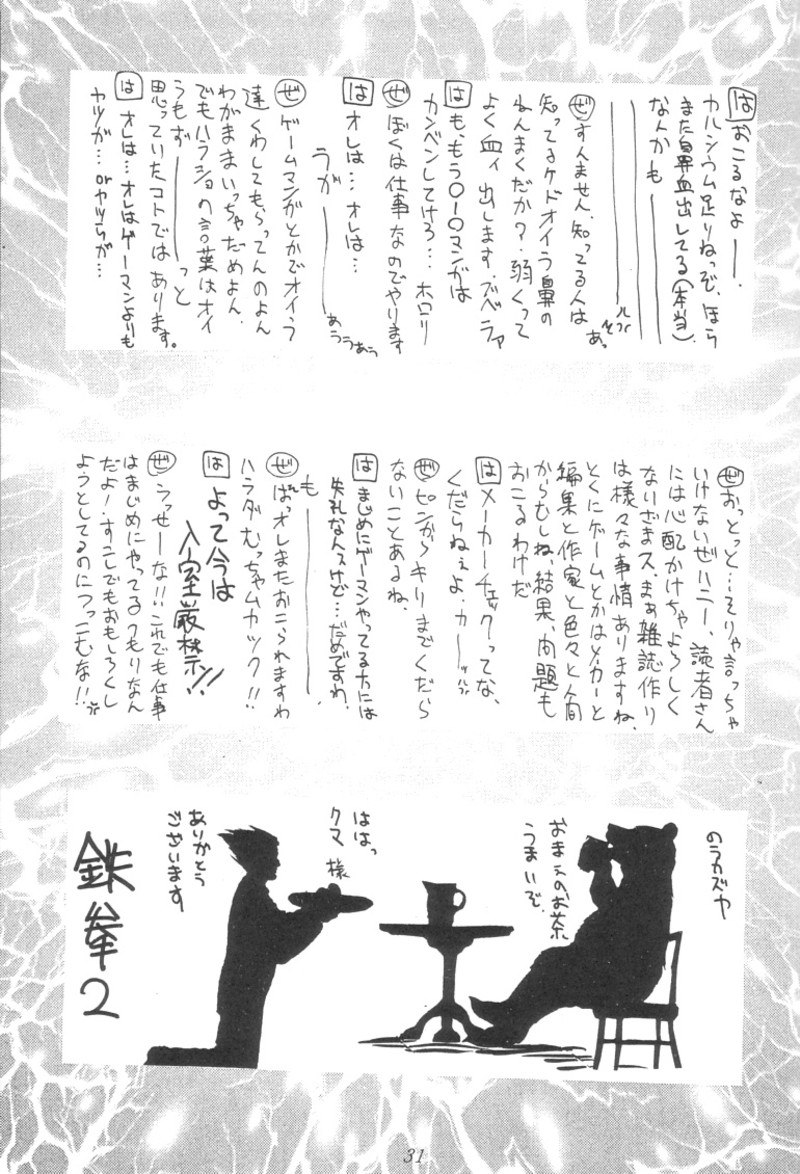 は おこるなよー
カルシウム足りねっぞ、ほら
また鼻血出してる(本当)
なんかもー
ぜ すんません、知ってる人は
知ってるケドオイラ鼻の
ねんまくだか?弱くって
よく血ィ出します。ブベラァ
は も、もう○ー○マンがは
カンベンしてけろ… ホロリ
ぜ ぼくは仕事なのでやります
は オレは…オレは…
うがー
あうううあう
ぜ ゲームマンがとかでオイラ
達くわしてもらってんのよん
わがままいっちゃだめよん、
でもハラショの言葉はオイ
うもずーっと
思っていたコトではあります。
は オレは…オレはゲーマンよりも
ヤツが… orヤツらが…
ぜ おっとっと…そりゃ言っちゃ
いけないぜハニー、読者さん
には心配かけちゃよろしく
ないざまス、まぁ雑誌作り
は様々な事情ありますね、
とくにゲームとかはメーカーと
編集と作家と色々と人間
からむしね、結果、問題も
おこるわけだ
は メーカーチェックってな、
くだらねぇよ、カーッ
ぜ ピンからキリまでくだら
ないことあるね、
は まじめにゲーマンやってる方には
失礼なんスけど…だめですわ、
もー
ぜ ばっオレまたおこられますわ
ハラダむっちゃムカック!!
は よって今は
入室厳禁!!
ぜ うっせーな!!これでも仕事
はまじめにやってるつもりなん
だよ!すこしでもおもしろくし
ようとしてるのにつっこむな!!
のうカズヤ
おまえのお茶
うまいぞ、
ははっ
クマ様
ありがとう
ございます
鉄拳2
31